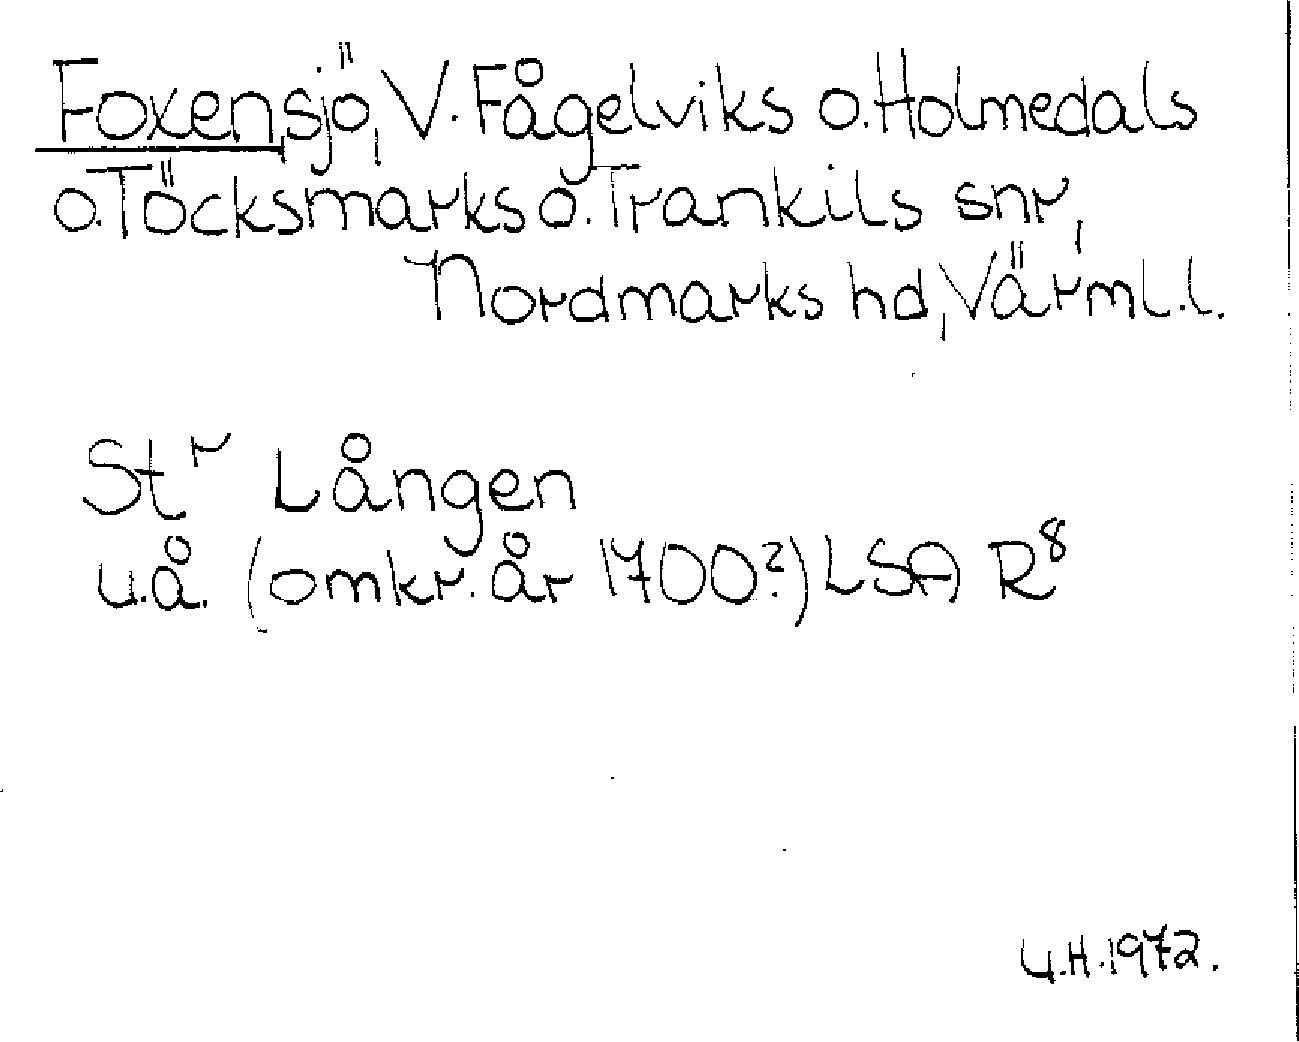 Foxen, sjö, V. Fågelviks o. Holmedals
o. Töcksmarks o. Trankils snr,
Nordmarks hd, Värml.l.
Str Lången
u.å. (omkr. år 1700?) LSA R8
U.H. 1972.